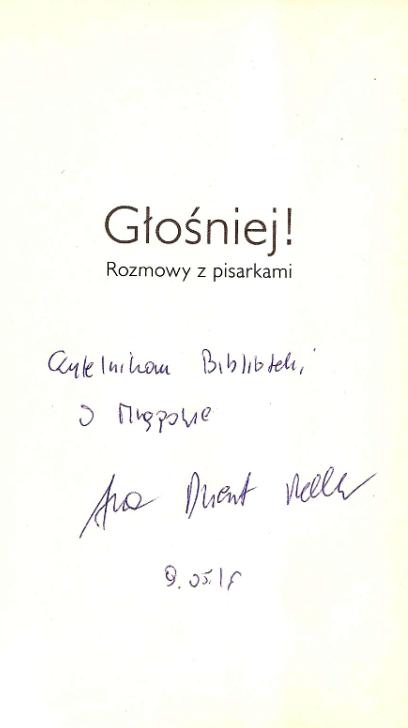 Głośniej!
Rozmowy z pisarkami
Czytelnikom Biblioteki
w
Dziewit Meller
9.05.18